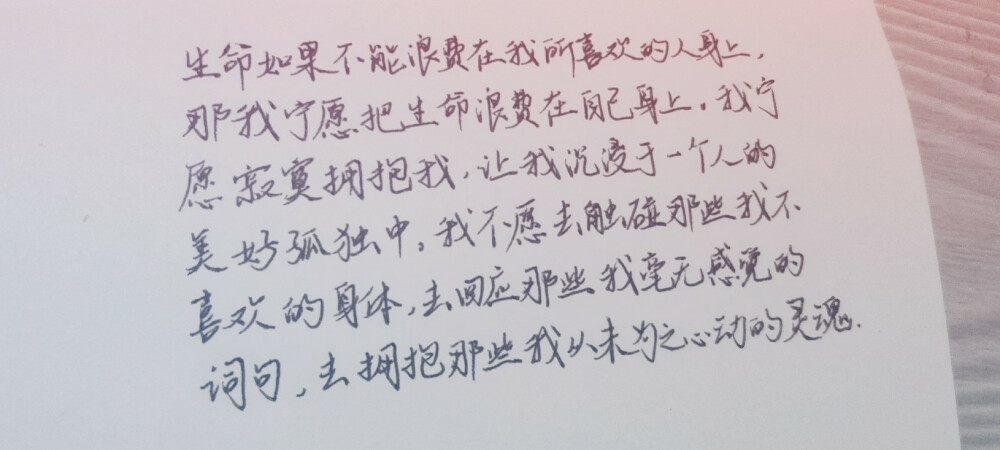 生命如果不能浪费在我所喜欢的人身上，
那我宁愿把生命浪费在自己身上。我宁
愿寂寞拥抱我，让我沉浸于一个人的
美好孤独中。我不愿去触碰那些我不
喜欢的身体，去回应那些我毫无感觉的
词句，去拥抱那些我从未为之心动的灵魂.